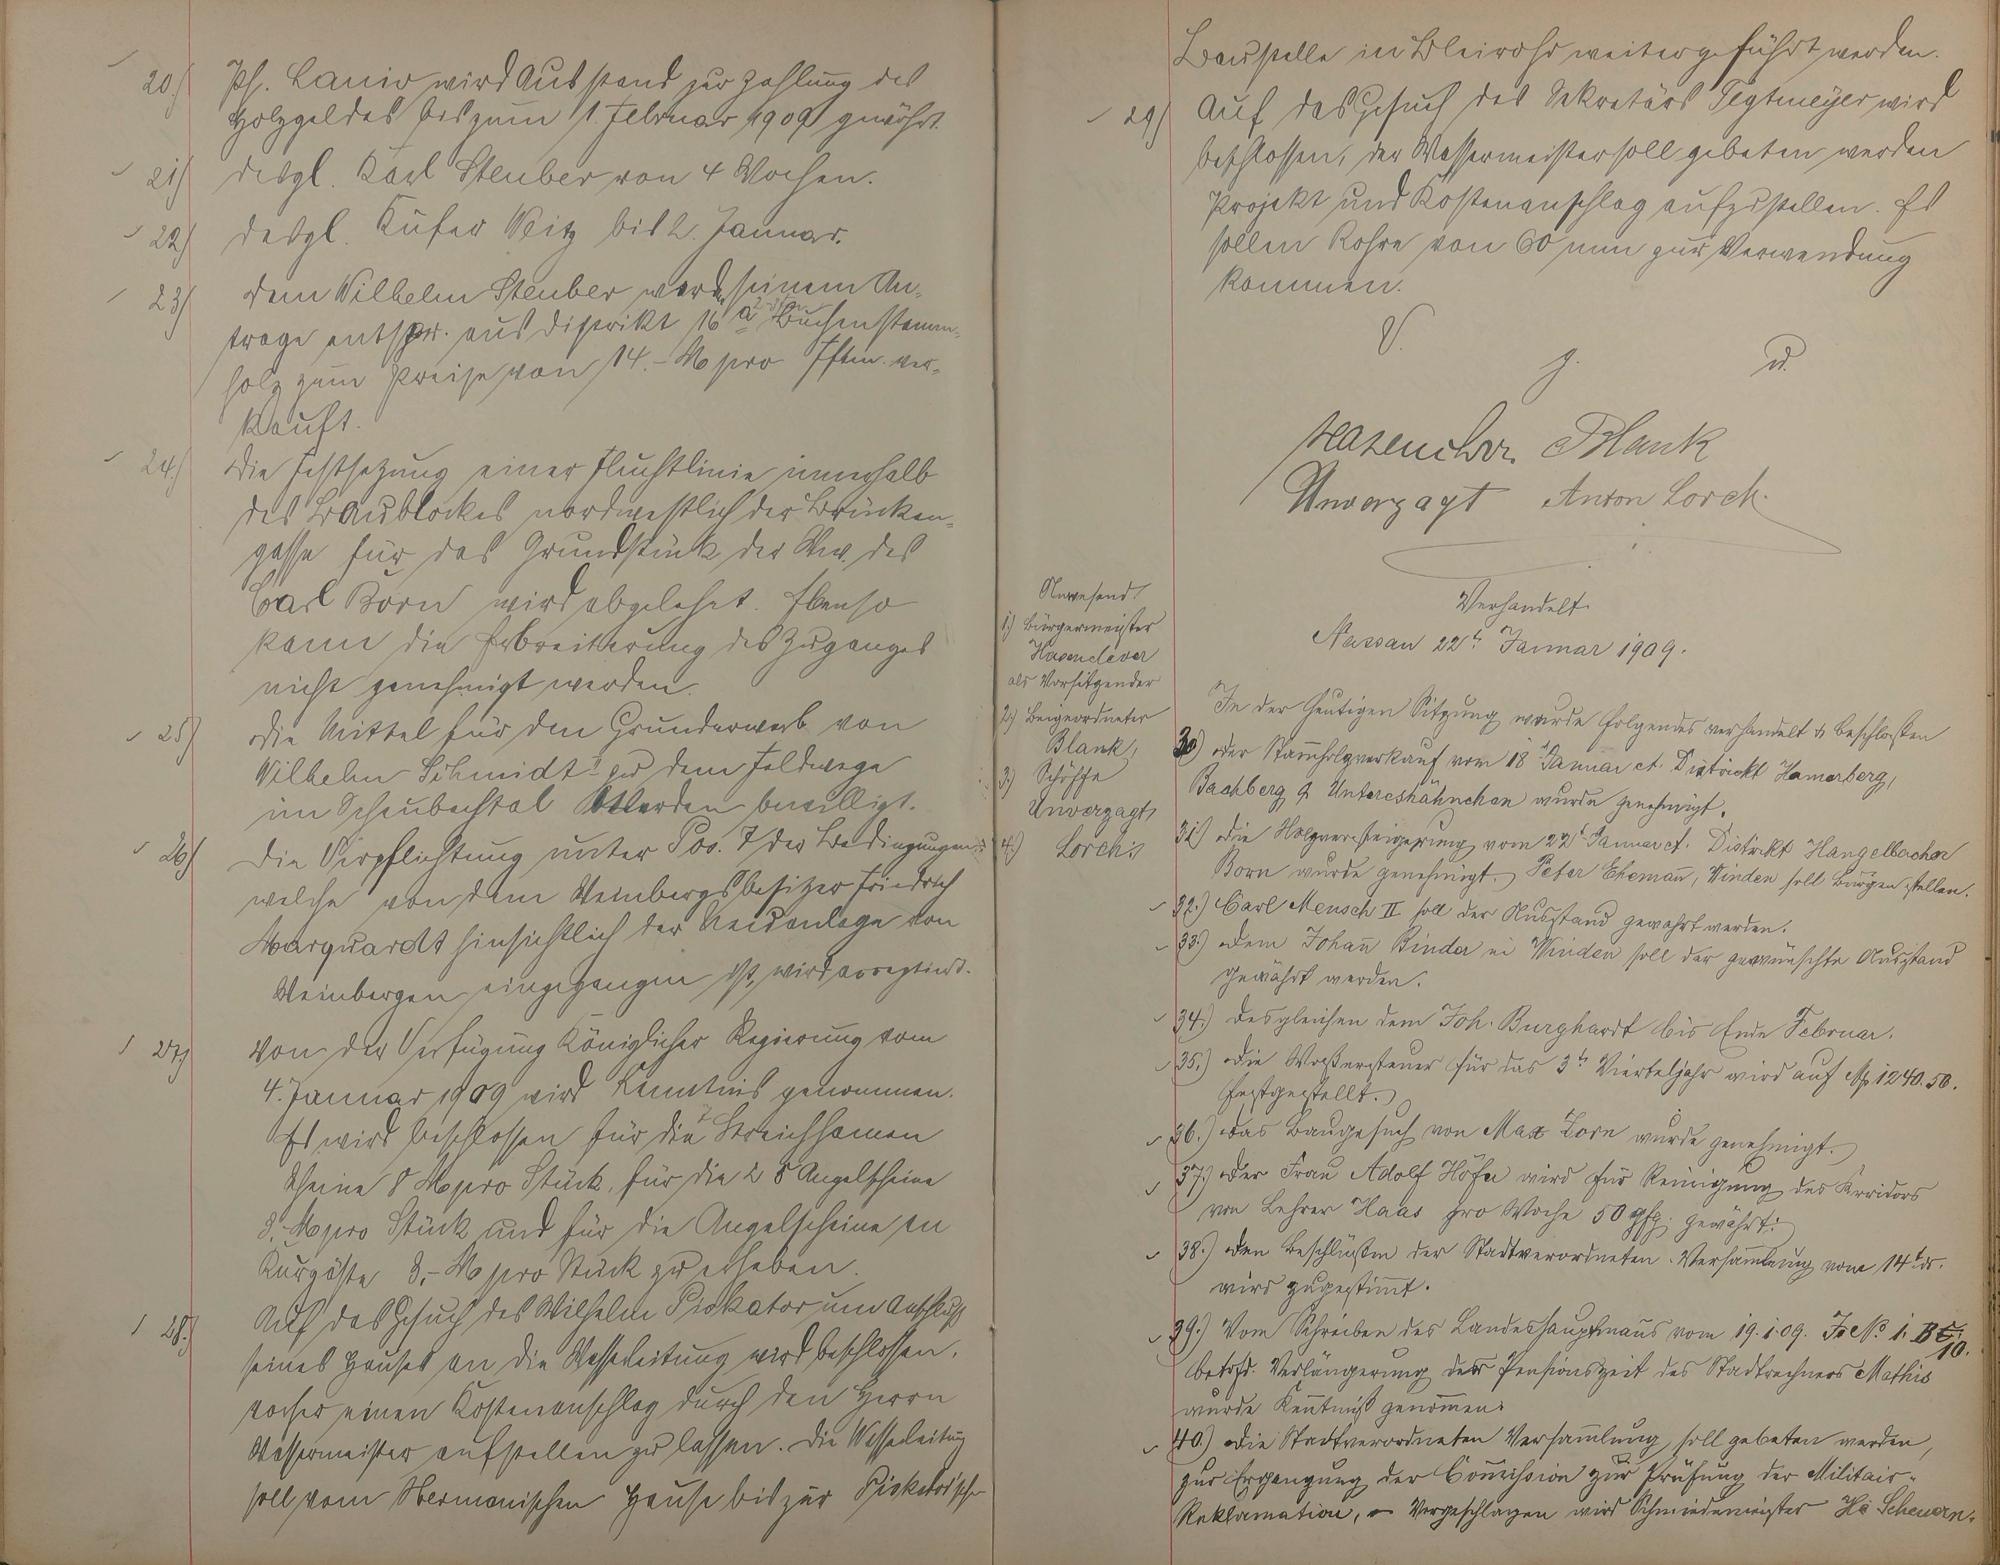 20) Ph. Lanio wird Ausstand zur Zahlung des
Holzgeldes bis zum 1. Februar 1909 gewährt.
21) desgl. Karl Steuber von 4 Wochen.
22) desgl. Küfer Weitz bis 2. Januar.
23) dem Wilhelm Steuber werden seinem An-
trage entspr. aus Distrikt 16 a 2 Buchenstamm-
holz zum Preise von 14.- M pro Fstm. ver-
kauft.
24) Die Festsetzung einer Fluchtlinie innerhalb
des Baublockes nordwestlich der Brücken-
gasse für das Grundstück der Ww. des
Carl Born wird abgelehnt. Ebenso
kann die Erbreiterung des Zuganges
nicht genehmigt werden.
25) Die Mittel für den Grunderwerb von
Wilhelm Schmidt II zu dem Feldwege
im Scheubachtal werden bewilligt.
26) Die Verpflichtung unter Pos. 7 der Bedingungen
welche von dem Weinbergsbesitzer Friedrich
Marquardt hinsichtlich der Neuanlage von
Weinbergen eingegangen ist, wird acceptiert.
27) Von der Verfügung Königlicher Regierung vom
4. Januar 1909 wird Kenntnis genommen.
Es wird beschlossen für die 7 Streichhamen
scheine 8 M pro Stück, für die 28 Angelscheine
3.- M pro Stück und für die Angelscheine an
Kurgäste 3,- M pro Stück zu erheben.
28) Auf das Gesuch des Wilhelm Piskator um Anschluß
seines Hauses an die Wasserleitung wird beschlossen,
vorher einen Kostenanschlag durch den Herrn
Wassermeister aufstellen zu lassen. Die Wasserleitung
soll vom Hermanischen Hause bis zur Piskator'schen
Baustelle in Bleirohr weitergeführt werden.
29) Auf das Gesuch des Sekretärs Tegtmeyer wird
beschlossen, der Wassermeister soll gebeten werden
Projekt und Kostenanschlag aufzustellen. Es
sollen Rohre von 60 mm zur Verwendung
kommen.
V. g. u.
Hasenclever. Blank
Unverzagt Anton Lorch.
Anwesend:
1) Bürgermeister
Hasenclever
als Vorsitzender
2) Beigeordneter
Blank,
3) Schöffe
Unverzagt,
4) Lorch:
Verhandelt.
Nassau 22t. Januar 1909.
In der heutigen Sitzung wurde folgendes verhandelt & beschlossen
30) Der Stam̄holzverkauf vom 18t Januar ct. Distrikt Hamerberg,
Bachberg & Untereshähnchen wurde genehmigt.
31) Die Holzversteigerung vom 22t Januar ct. Distrikt Hangelbacher
Born wurde genehmigt. Peter Ehemañ, Winden soll Bürgen stellen.
32.) Carl Mensch II soll der Ausstand gewährt werden.
33.) Dem Johañ Binder in Winden soll der gewünschte Ausstand
gewährt werden.
34.) Desgleichen dem Joh. Burghardt bis Ende Februar.
35.) Die Waßersteuer für das 3te Vierteljahr wird auf M 1240.50.
festgestellt.
36.) Das Baugesuch von Max Born wurde genehmigt.
37.) Der Frau Adolf Höfer wird für Reinigung des Korridors
von Lehrer Haas pro Woche 50 Pfg. gewährt.
38.) Den Beschlüßen der Stadtverordneten Versam̄lung vom 14t ds.
wird zugestim̄t.
39.) Vom Schreiben des Landeshauptmañs vom 19.1.09.
betrfd. Verlängerung der Pensionszeit des Stadtrechners Mathis
wurde Keñtniß genom̄en.
40.) Die Stadtverordneten Versam̄lung soll gebeten werden,
zur Ergänzung der Com̄ission zur Prüfung der Militair-
Reklamation, Vorgeschlagen wird Schmiedemeister Hch Scheuern.